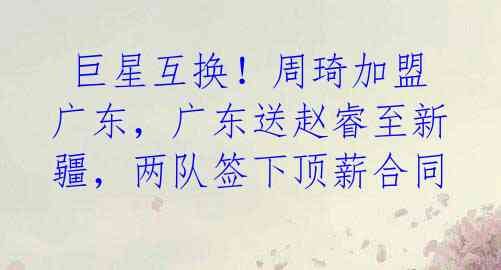 巨星互换！周琦加盟
广东，广东送赵睿至新
疆，两队签下顶薪合同